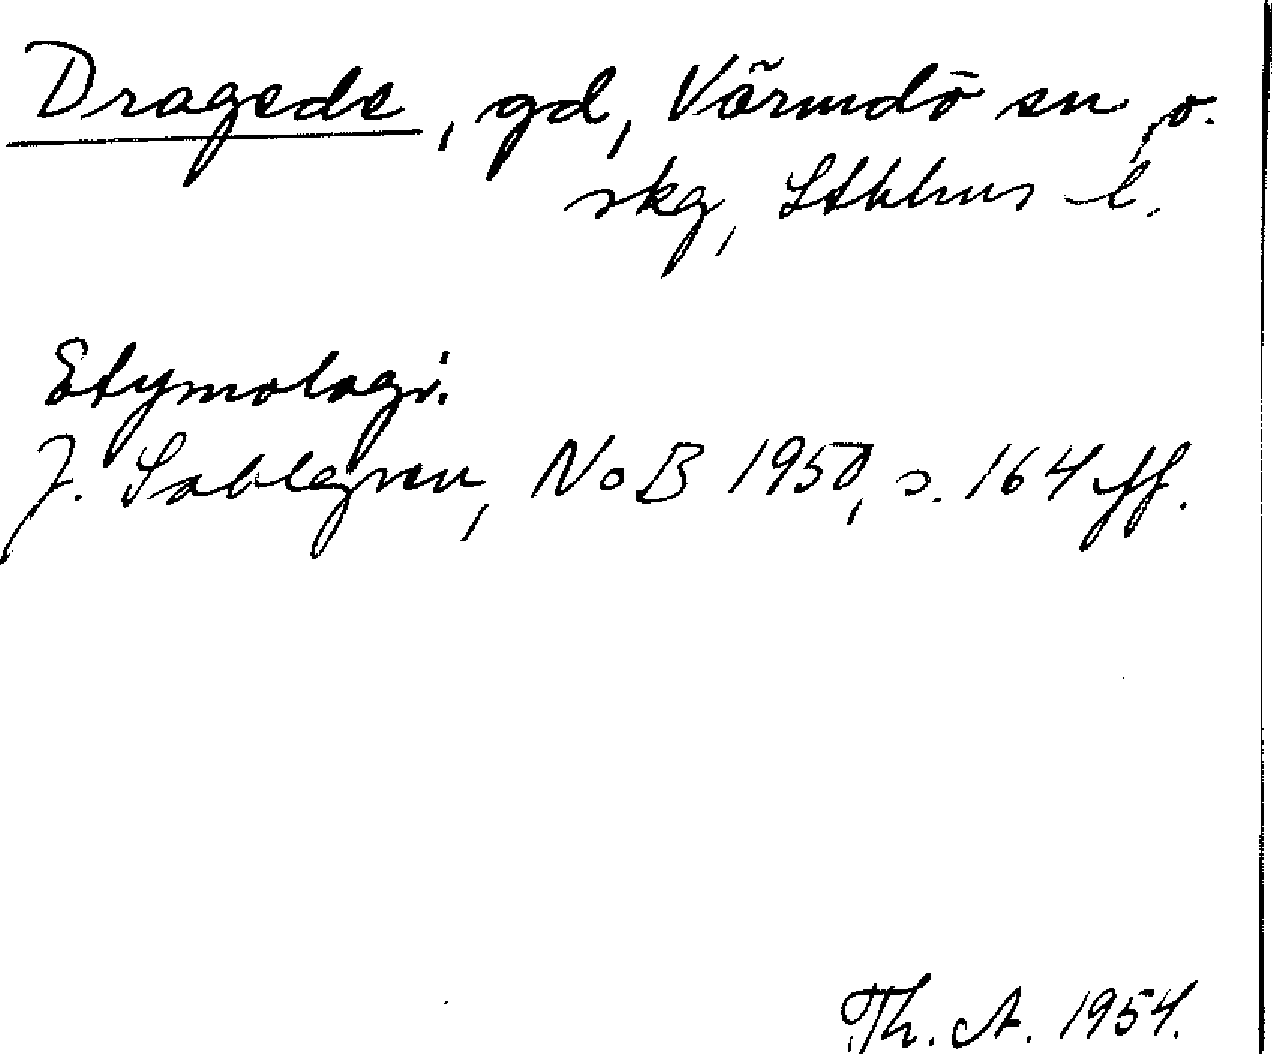 Dragede, gd, Värmdö sn o.
skg, Sthlms l.
Etymologi:
J. Sahlgren, NoB 1950, s. 164 ff.
Th. A. 1954.